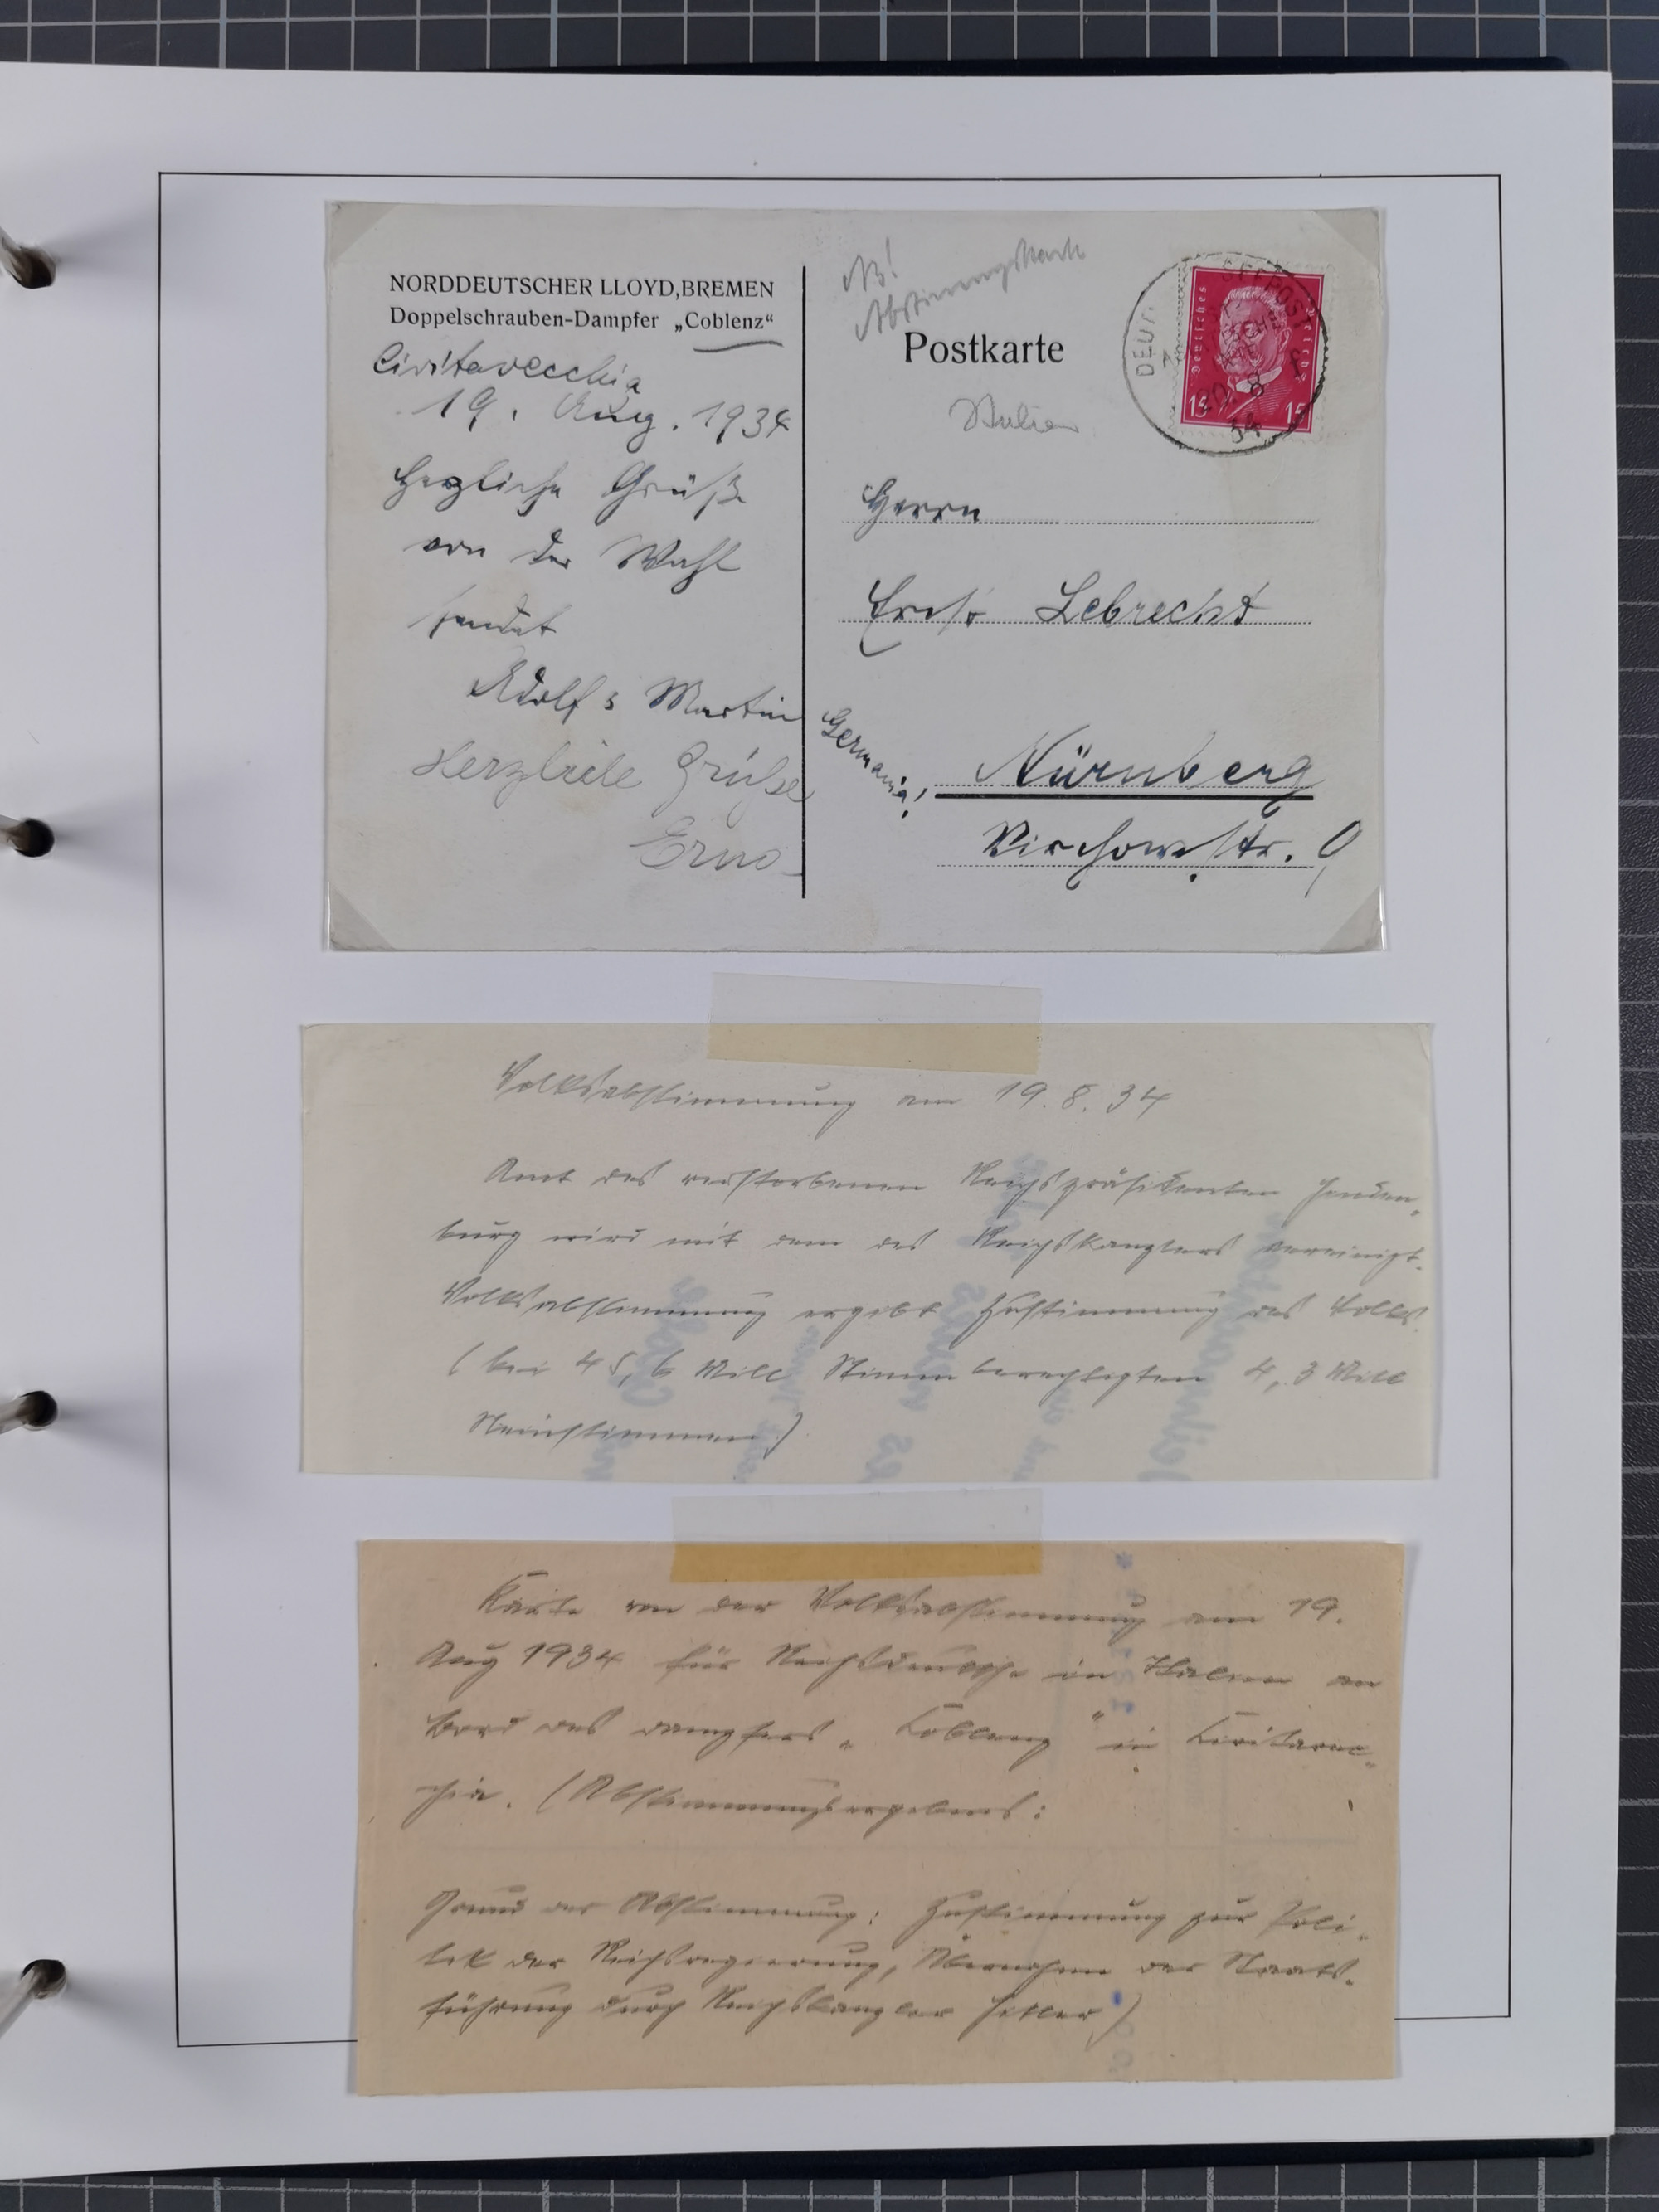 NORDDEUTSCHER LLOYD, BREMEN
Doppelschrauben-Dampfer „Coblenz“
Civitavecchia
19. Aug. 1934
Herzliche Grüße
von der Wahl
sendet
Adolf Martin
Herzliche Grüße
Erno
NB!
Abstimmungskarte
Postkarte
Italien
DEUT SEEPOST
20 8
34
Deutsches Reich
15 15
Herrn
Ernst Lebrecht
Germania!
Nürnberg
Virchowstr. 9
Volksabstimmung am 19.8.34
Amt des verstorbenen Reichspräsidenten Hinden-
burg wird mit dem des Reichskanzlers vereinigt.
Volksabstimmung ergibt Zustimmung des Volkes.
(bei 45,6 Mill Stimmberechtigten 4,3 Mill
Neinstimmen)
Karte von der Volksabstimmung am 19.
Aug 1934 für Reichsdeutsche in Italien an
Bord des Dampfers „Coblenz“ in Civitavec-
chia. (Abstimmungsergebnis:
Grund der Abstimmung: Zustimmung zur Poli-
tik der Reichsregierung, Übernahme der Staats-
führung durch Reichskanzler Hitler)